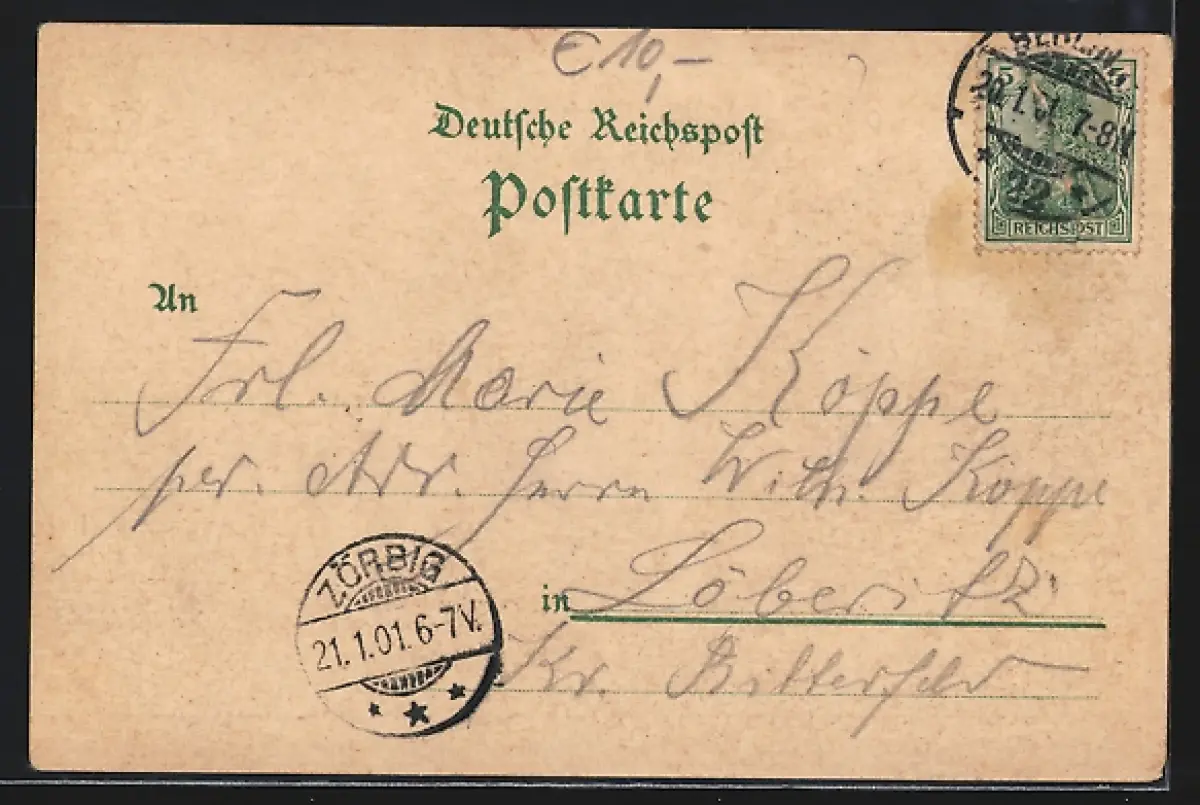 € 10,-
Deutsche Reichspost
Postkarte
BERLIN
20.1.01. 7-8N
22
5
REICHSPOST
An
Frl. Marie Köppe
per. Adr. Herrn Wilh. Köppe
in Löberitz
Kr. Bitterfeld
ZÖRBIG
21.1.01.6-7V.